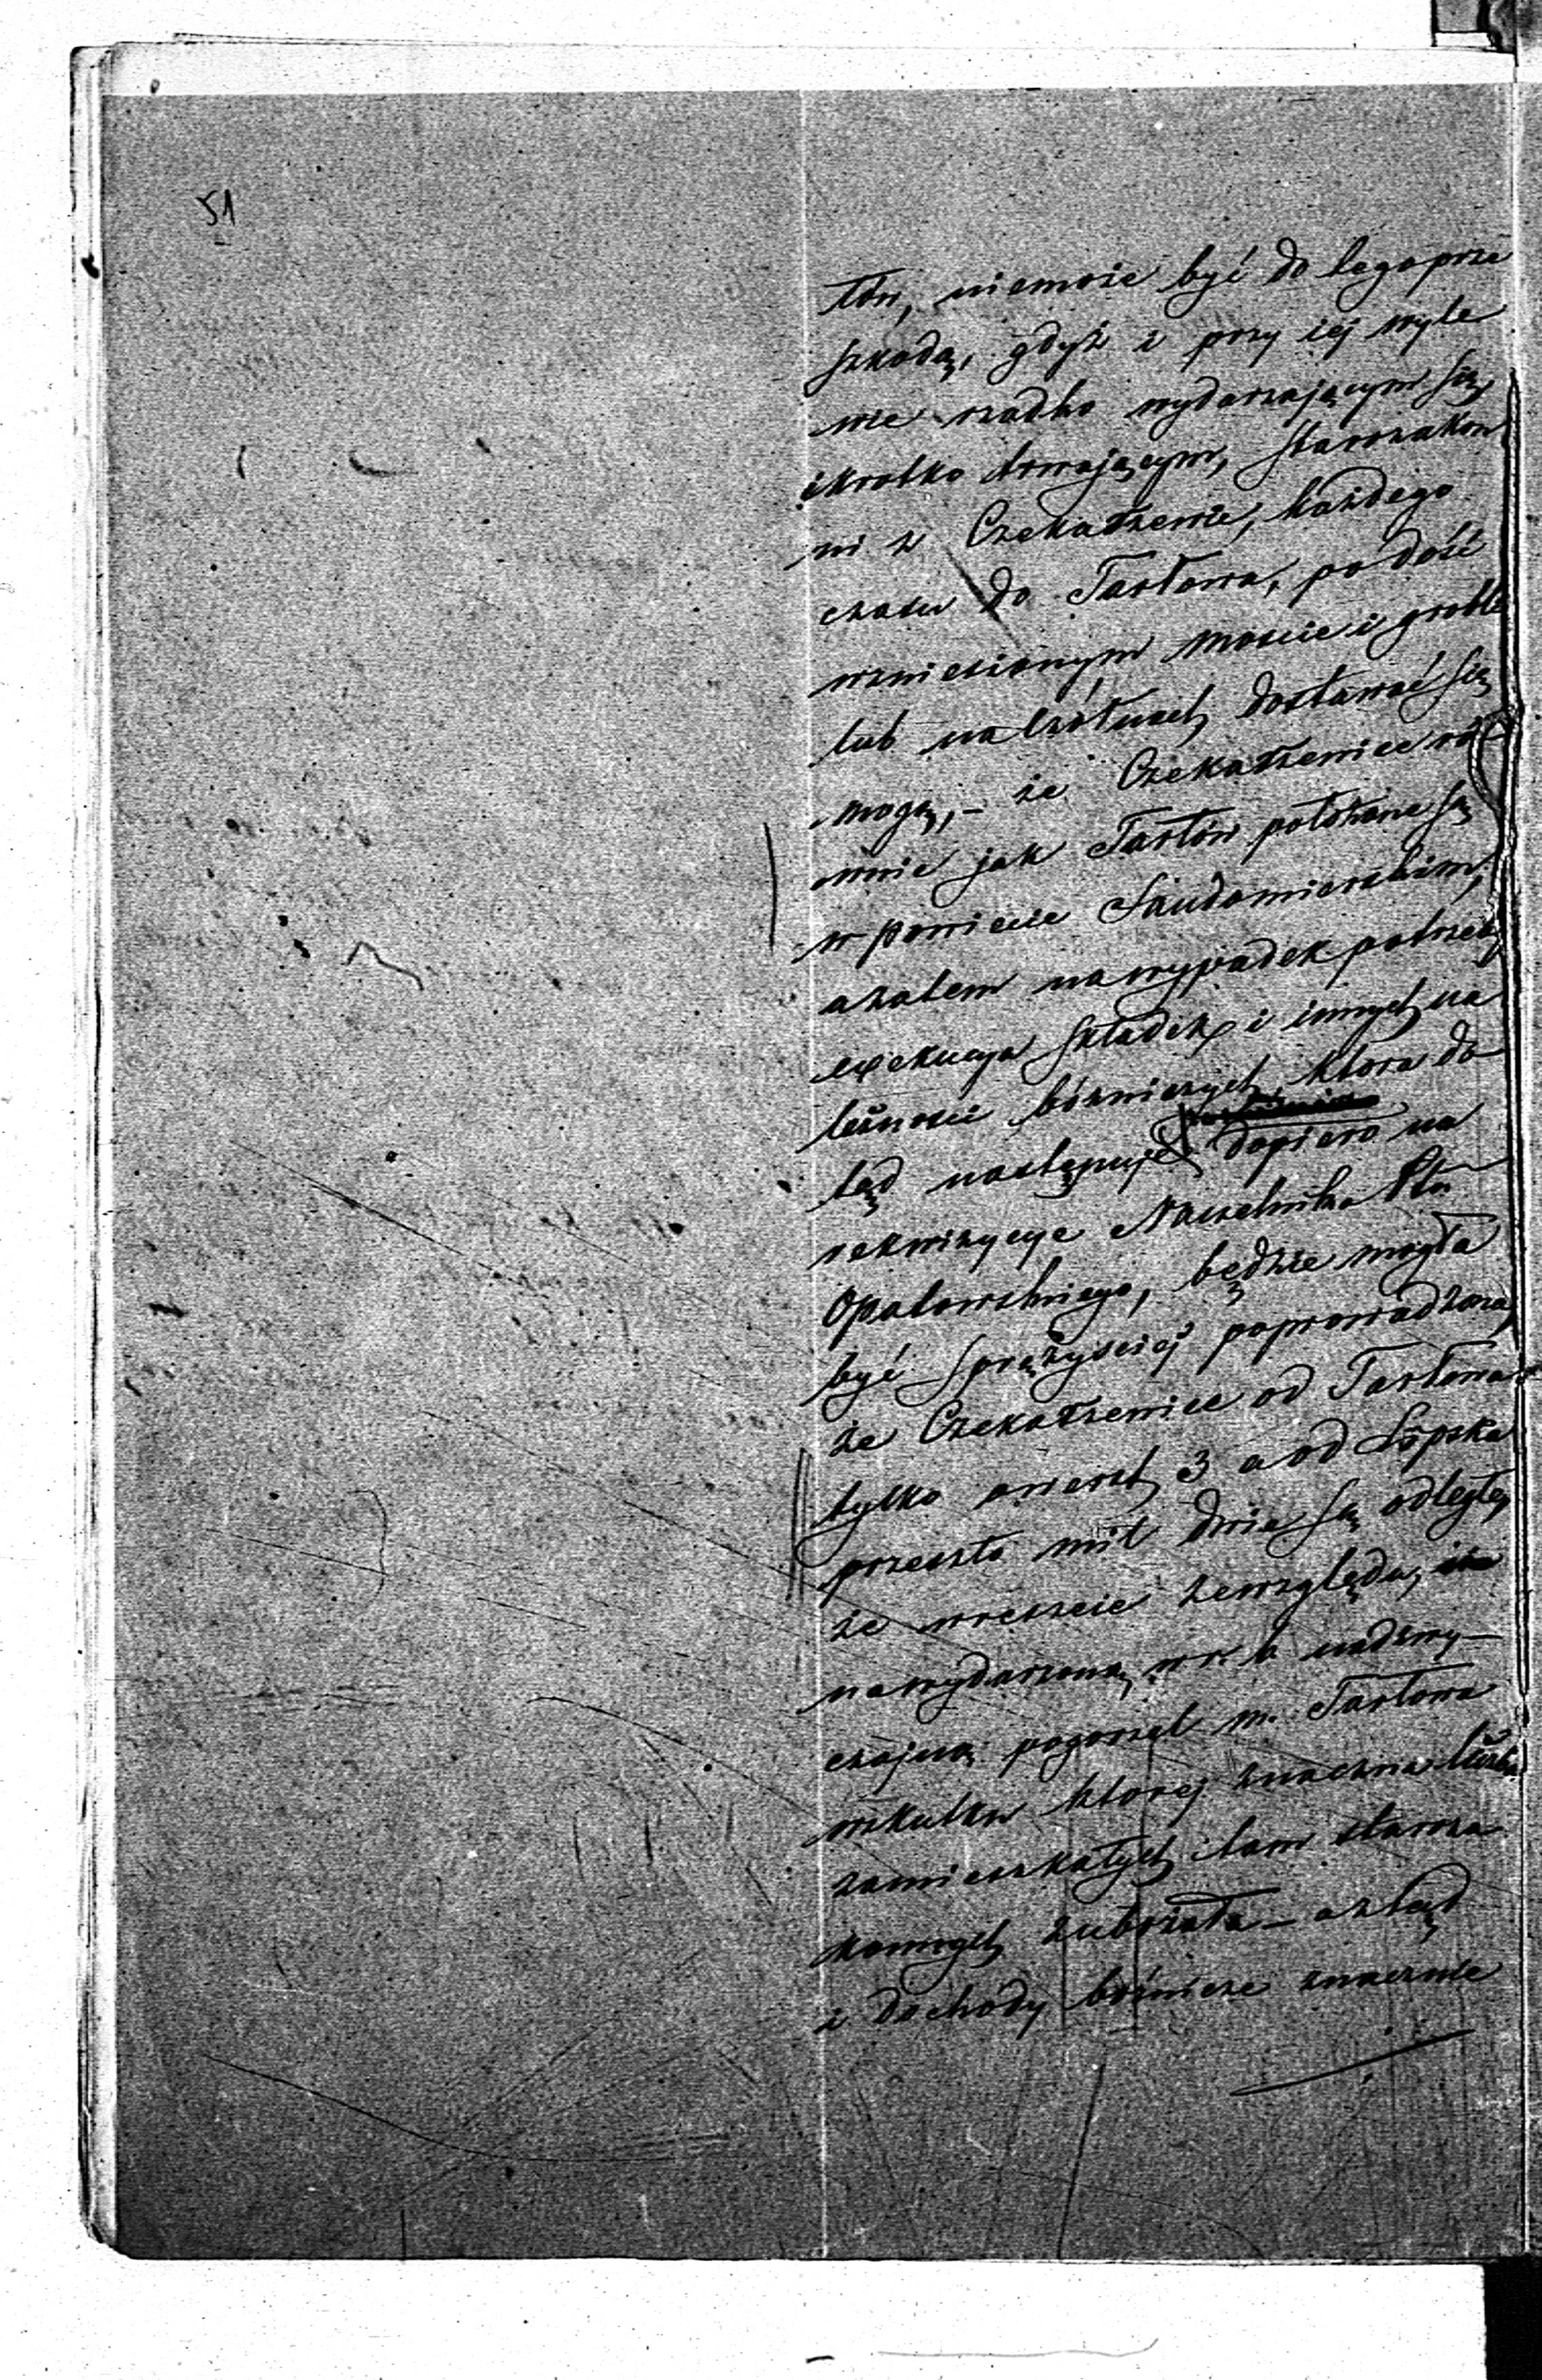 51
tów, niemoże być do tego prze
szkodą, gdyż i przy iej wyle
wie rzadko wydarzającym się,
i krotko trwającym, starozakon
ni z Czekarzewic, każdego
czasu do Tarłowa, po dość
wzniesionym moscie i grobli
lub na łzółnach dostawać się
mogą, – że Czekarzewice ró
wnie jak Tarłów położone są
w powiecie Sandomierskim,
azatem na wypadek potrzeby
exekucya składek i innych na
leżności bóżniczych, która do
tąd następuje dopiero na
rekwizycye Naczelnika Ptu
Opatowskiego, będzie mogła
być sprężyściej poprowadzona,
że Czekarzewice od Tarłowa
tylko wiorst 3 a od Lipska
przeszło mil dwie są odległe,
że wreszcie ze względu,
na wydarzoną w r. b. nadzwy–
czajną pogorzel m. Tarłowa
wskutku ktorej znaczna liczba
zamieszkałych tam staroza
konnych zubożała – a ztąd
i dochody bożnicze znacznie